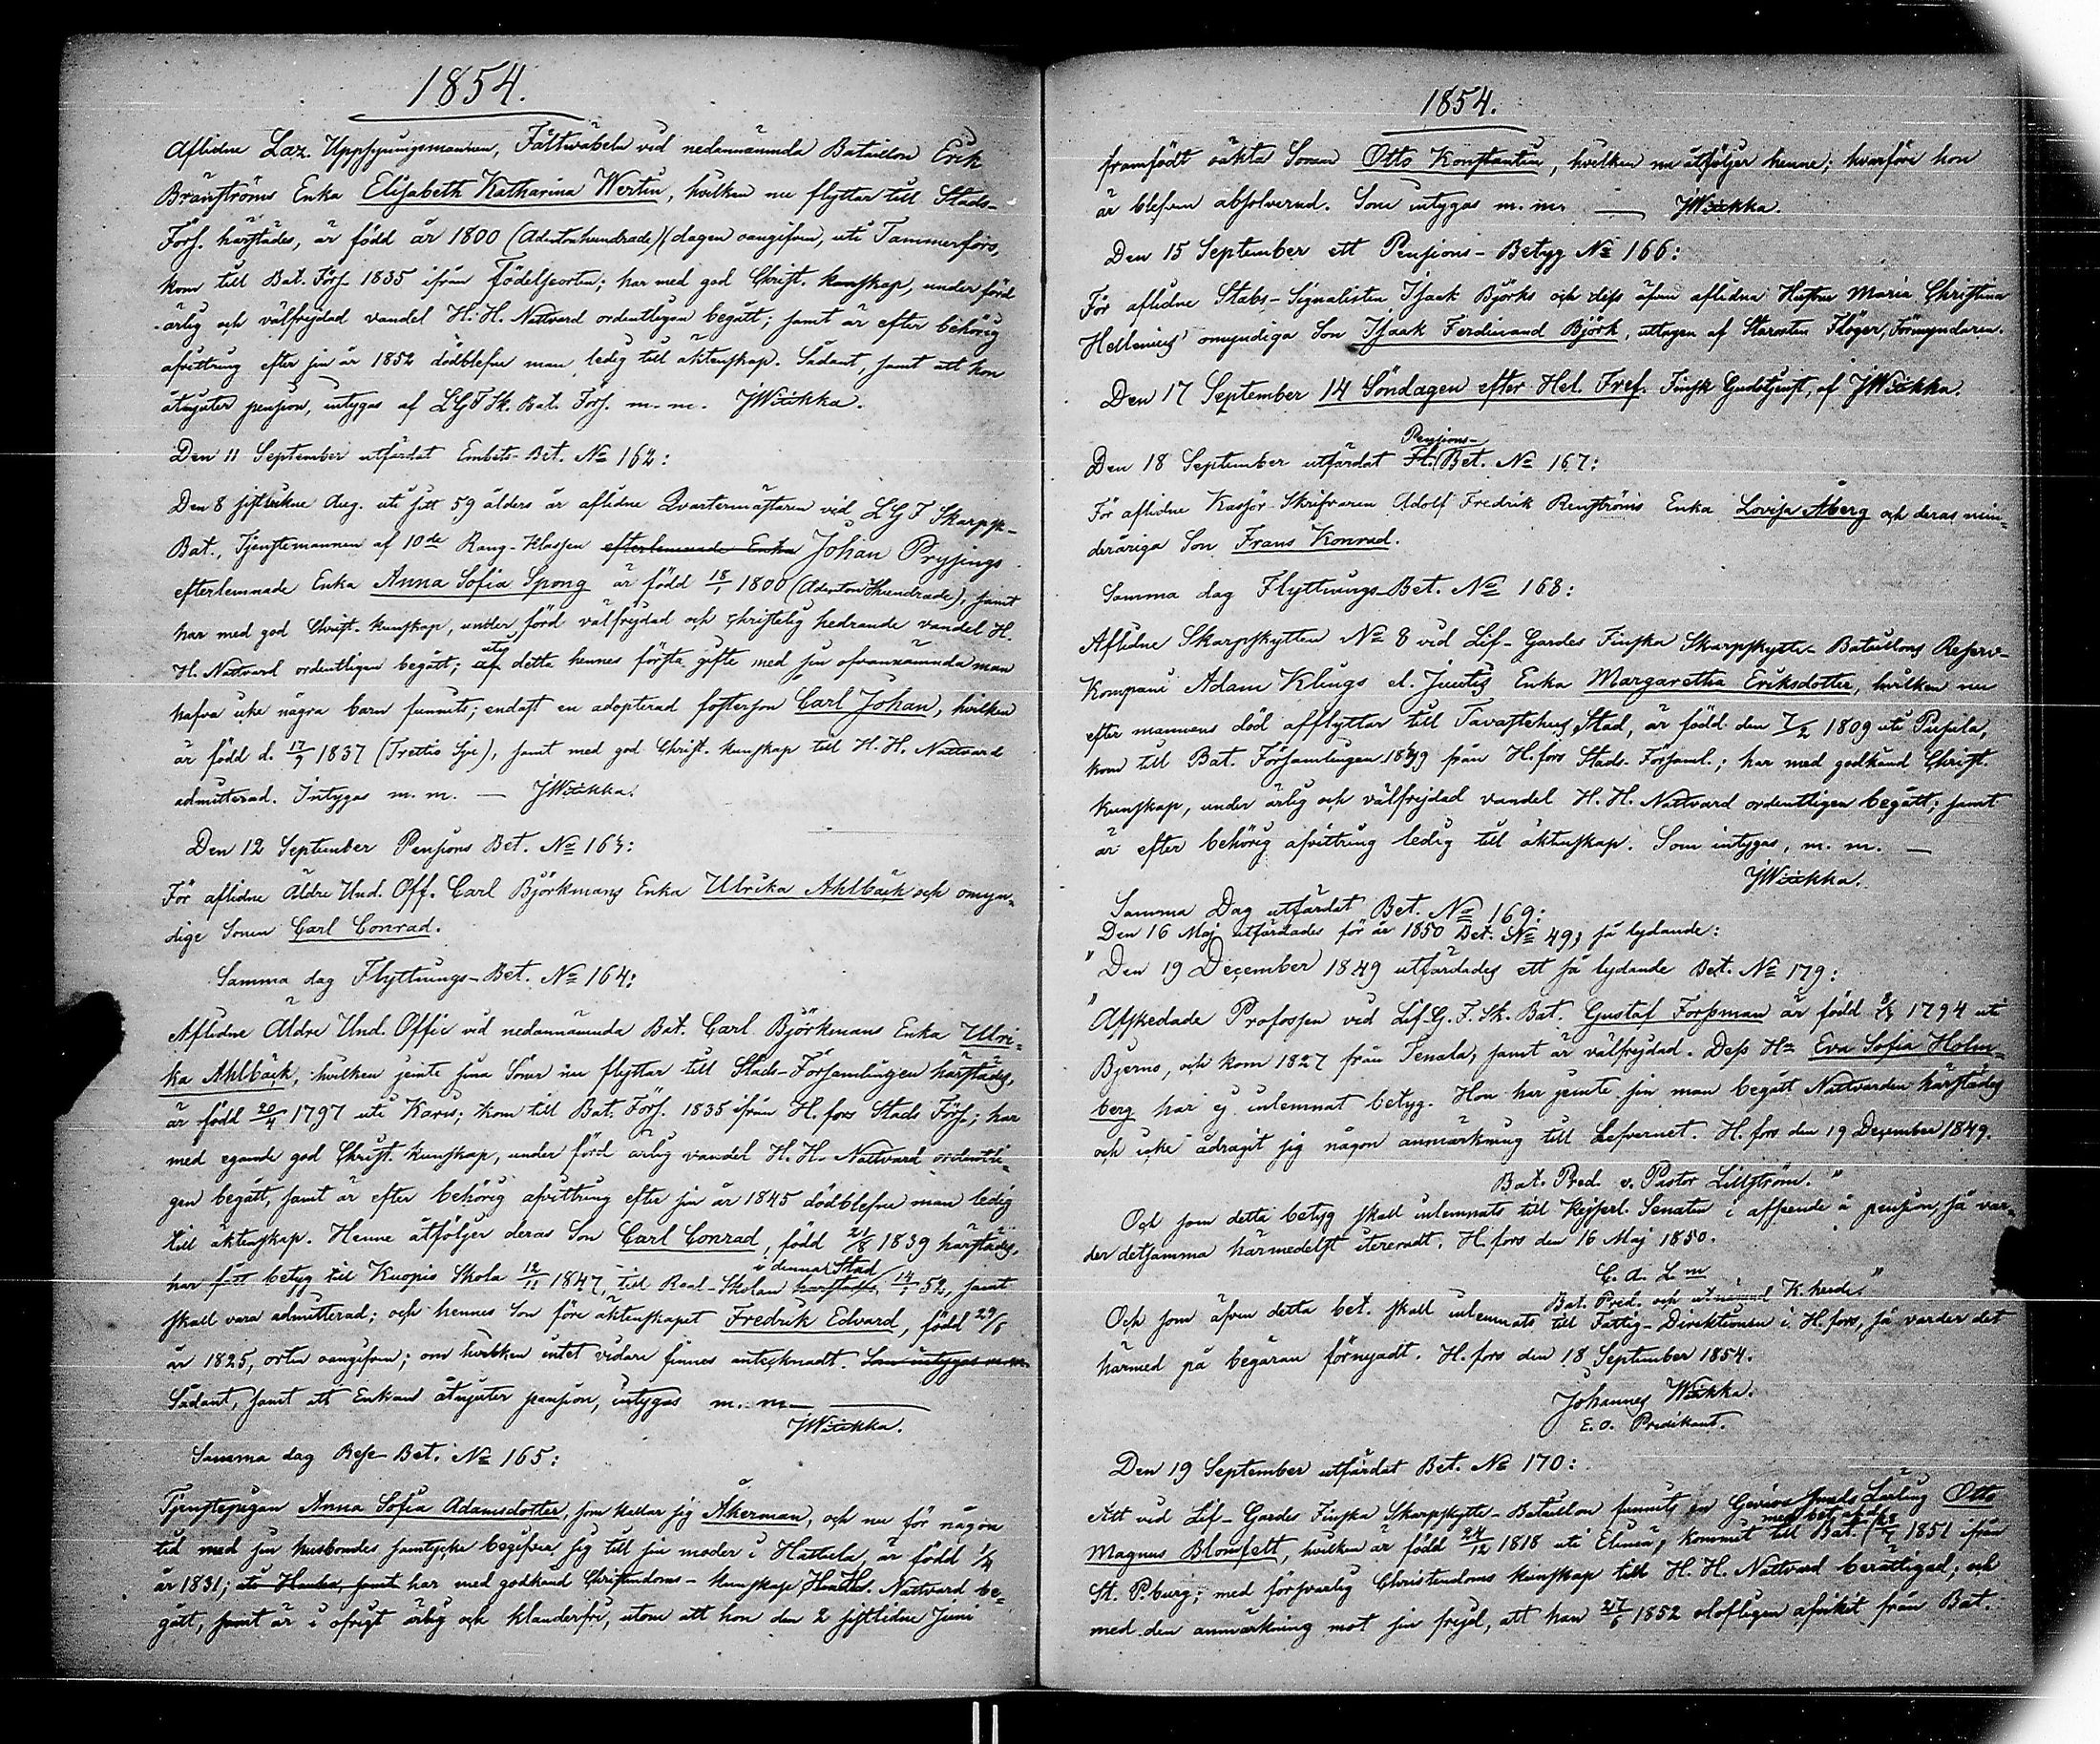 1854.
Aflidne Laz. Uppsyningsmannen, Fältwäbeln vid nedannämnda Bataillon Erik
Bränströms Enka Elisabeth Katharina Wertin, hvilken nu flyttar till Stads-
Förs. härstädes, är född år 1800 (Adertonhundrade) (dagen oangifven, uti Tammerfors,
kom till Bat. Förs. 1835 ifrån Födelseorten; har med god Christ. kunskap, under förd
ärlig och välfrejdad vandel H. H. Nattvard ordentligen begått; samt är efter behörig
afvittring efter sin år 1852 dödblefne man, ledig till äktenskap. Sådant, samt att hon
åtnjuter pension, intygas af L.G.F.Sk. Bat. Förs. m. m. JWiikka.
Den 11 September utfärdat Embets-Bet. No 162:
Den 8 sistlidne Aug. uti sitt 59 ålders år aflidne Qvartermästaren vid L G F Skarpsk-
Bat., Tjenstemannen af 10de Rang-Klassen efterlemnade Enka Johan Pryssings
efterlemnade Enka Anna Sofia Spong är född 18/1 1800 (Aderton Hundrade), samt
har med god Christ. kunskap, under förd välfrejdad och christelig hedrande vandel H.
H. Nattvard ordentligen begått; af uti detta hennes första gifte med sin ofvannämnda man
hafva icke några barn funnits; endast en adopterad fosterson Carl Johan, hvilken
är född d. 17/7 1837 (Trettio Sju), samt med god Christ. kunskap till H. H. Nattvard
admitterad. Intygas m. m. — JWiikka.
Den 12 September Pensions Bet. No 163:
För aflidne Äldre Und. Off. Carl Björkmans Enka Ulrika Ahlbäck och omyn-
dige Sonen Carl Conrad.
Samma dag Flyttnings-Bet. No 164:
Aflidne Äldre Und. Offic vid nedannämnda Bat. Carl Björkmans Enka Ulri-
ka Ahlbäck, hvilken jemte sina Söner nu flyttar till Stads-Församlingen härstädes,
är född 20/4 1797 uti Karis; kom till Bat. Förs. 1835 ifrån H.fors Stads Förs.; har
med egande god Christ. kunskap, under förd ärlig vandel H. H. Nattvard ordentli-
gen begått, samt är efter behörig afvittring efter sin år 1845 dödblefne man ledig
till äktenskap. Henne åtföljer deras Son Carl Conrad, född 21/8 1839 härstädes,
har fått betyg till Kuopio Skola 12/11 1847, till Real-Skolan härstädes i denna Stad 14/1 52, samt
skall vara admitterad; och hennes Son före äktenskapet Fredrik Edvard, född 29/6
år 1825, orten oangifven; om hvilken intet vidare finnes antecknadt. Som intygas m. m.
Sådant, samt att Enkan åtnjuter pension, intygas m. m. —
JWiikka.
Samma dag Rese-Bet. No 165:
Tjenstepigan Anna Sofia Adamsdotter, som kallar sig Åkerman, och nu för någon
tid med sin husbondes samtycke begifver sig till sin moder i Hattula, är född 1/4
år 1831; samt har med godkänd Christendoms-kunskap H. H. Nattvard be-
gått, samt är i öfrigt ärlig och klanderfri, utom att hon den 2 sistlidne Juni
1854.
framfödt oäkta Sonen Otto Konstantin, hvilken nu åtföljer henne; hvarföre hon
är blefven absolverad. Som intygas m. m. — JWiikka.
Den 15 September ett Pensions-Betyg No 166:
För aflidne Stabs-Signalisten Isaak Björks och dess äfven aflidna Hustru Maria Christina
Hellenius' omyndiga Son Isaak Ferdinand Björk, uttagen af Starosten Flöger, Förmyndaren.
Den 17 September 14 Söndagen efter Hel. Tref. Finsk Gudstjenst, af JWiikka.
Den 18 September utfärdat Fl. Pensions- Bet. No 167:
För aflidne Kassör-Skrifvaren Adolf Fredrik Renströms Enka Lovisa Åberg och deras min-
deråriga Son Frans Konrad.
Samma dag Flyttnings-Bet. No 168:
Aflidne Skarpskytten No 8 vid Lif-Gardes Finska Skarpskytte-Bataillons Reserv-
Kompani Adam Klings el. Juutis Enka Margaretha Eriksdotter, hvilken nu
efter mannens död afflyttar till Tavastehus Stad, är född den 7/2 1809 uti Pusula,
kom till Bat. Församlingen 1849 från H.fors Stads-Församl.; har med godkänd Christ.
kunskap, under ärlig och välfrejdad vandel H. H. Nattvard ordentligen begått; samt
är efter behörig afvittring ledig till äktenskap. Som intygas, m. m. —
JWiikka.
Samma Dag utfärdat Bet. No 169:
Den 16 Maj utfärdades för år 1850 Bet. No 49; så lydande:
"Den 19 December 1849 utfärdades ett så lydande Bet. No 179:
"Afskedade Profossen vid Lif.G.F.Sk. Bat. Gustaf Forssman är född 1794 uti
Bjerno, och kom 1827 från Tenala, samt är välfrejdad. Dess Ha Eva Sofia Holm-
berg har ej inlemnat betyg. Hon har jemte sin man begått Nattvarden härstädes
och icke ådragit sig någon anmärkning till Lefvernet. H.fors den 19 December 1849.
Bat. Pred. v. Pastor Lillström."
Och som detta betyg skall inlemnats till Kejserl. Senaten i afseende å pension, så var-
der detsamma härmedelst itereradt. H.fors den 16 Maj 1850.
C. A. L—m
Bat. Pred. och utnämnd K.herde."
Och som äfven detta bet. skall inlemnats till Fattig-Direktionen i H.fors, så varder det
härmed på begäran förnyadt. H.fors den 18 September 1854.
Johannes Wiikka.
E. O. Predikant.
Den 19 September utfärdat Bet. No 170:
Att vid Lif-Gardes Finska Skarpskytte-Bataillon funnits en Gevärs smeds Lärling Otto
Magnus Blomfelt, hvilken är född 24/12 1818 uti Elimä, kommit till Bat. 1851 ifrån
St. P.burg; med försvarlig Christendoms kunskap till H. H. Nattvard berättigad; och
med den anmärkning mot sin frejd, att han 27/6 1852 olofligen afvikit från Bat.